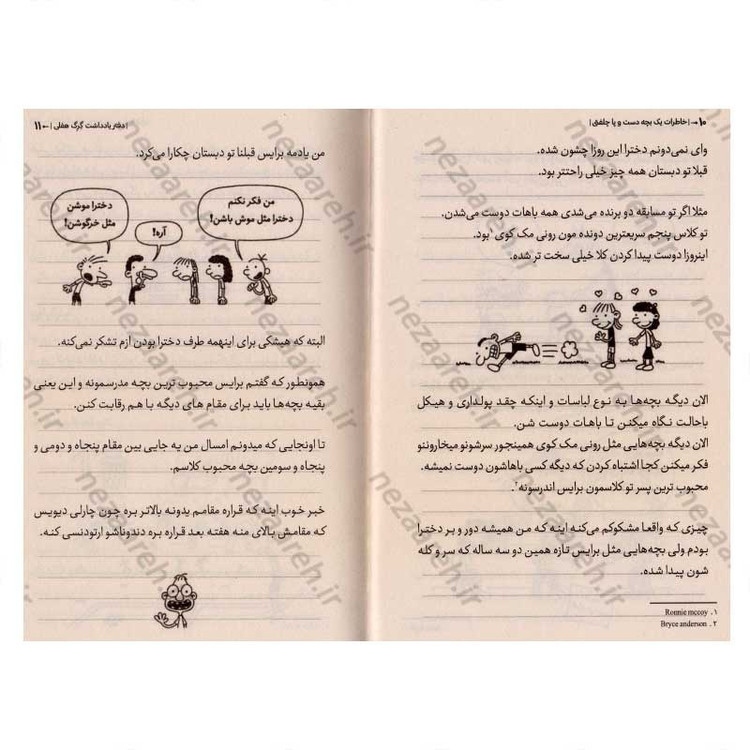 ۱۰ → | خاطرات یک بچه دست و پا چلفتی |
وای نمی‌دونم دخترا این روزا چشون شده.
قبلا تو دبستان همه چیز خیلی راحتتر بود.
مثلا اگر تو مسابقه دو برنده می‌شدی همه باهات دوست می‌شدن.
تو کلاس پنجم سریعترین دونده مون رونی مک کوی ۱ بود.
اینروزا دوست پیدا کردن کلا خیلی سخت تر شده.
الان دیگه بچه‌ها به نوع لباسات و اینکه چقد پولداری و هیکل
باحالت نگاه میکنن تا باهات دوست شن.
الان دیگه بچه‌هایی مثل رونی مک کوی همینجور سرشونو میخاروننو
فکر میکنن کجا اشتباه کردن که دیگه کسی باهاشون دوست نمیشه.
محبوب ترین پسر تو کلاسمون برایس اندرسونه۲.
چیزی که واقعا مشکوکم می‌کنه اینه که من همیشه دور و بر دخترا
بودم ولی بچه‌هایی مثل برایس تازه همین دو سه ساله که سر و کله
شون پیدا شده.
۱ . Ronnie mccoy
۲ . Bryce anderson
| دفتر یادداشت گرگ هفلی | ← ۱۱
من یادمه برایس قبلنا تو دبستان چکارا می‌کرد.
من فکر نکنم
دخترا مثل موش باشن!
آره!
دخترا موشن
مثل خرگوشن!
البته که هیشکی برای اینهمه طرف دخترا بودن ازم تشکر نمی‌کنه.
همونطور که گفتم برایس محبوب ترین بچه مدرسمونه و این یعنی
بقیه بچه‌ها باید برای مقام های دیگه با هم رقابت کنن.
تا اونجایی که میدونم امسال من یه جایی بین مقام پنجاه و دومی و
پنجاه و سومین بچه محبوب کلاسم.
خبر خوب اینه که قراره مقامم یدونه بالاتر بره چون چارلی دیویس
که مقامش بالای منه هفته بعد قراره بره دندوناشو ارتودنسی کنه.
nezaareh.ir
nezaareh.ir
nezaareh.ir
nezaareh.ir
nezaareh.ir
nezaareh.ir